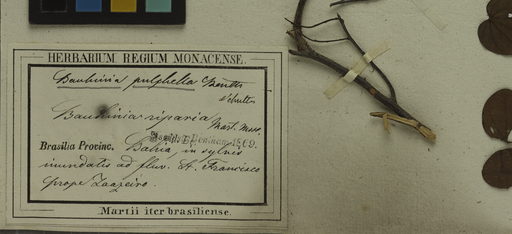 HERBARIUM REGIUM MONACENSE.
Bauhinia pulchella Benth
Bauhinia riparia Mart. Mss.
1869.
Brasilia Provinc. Bahia, in sylvis
inundatis ad fluv. S. Francisco
prope Joazeiro
Martii iter brasiliense.